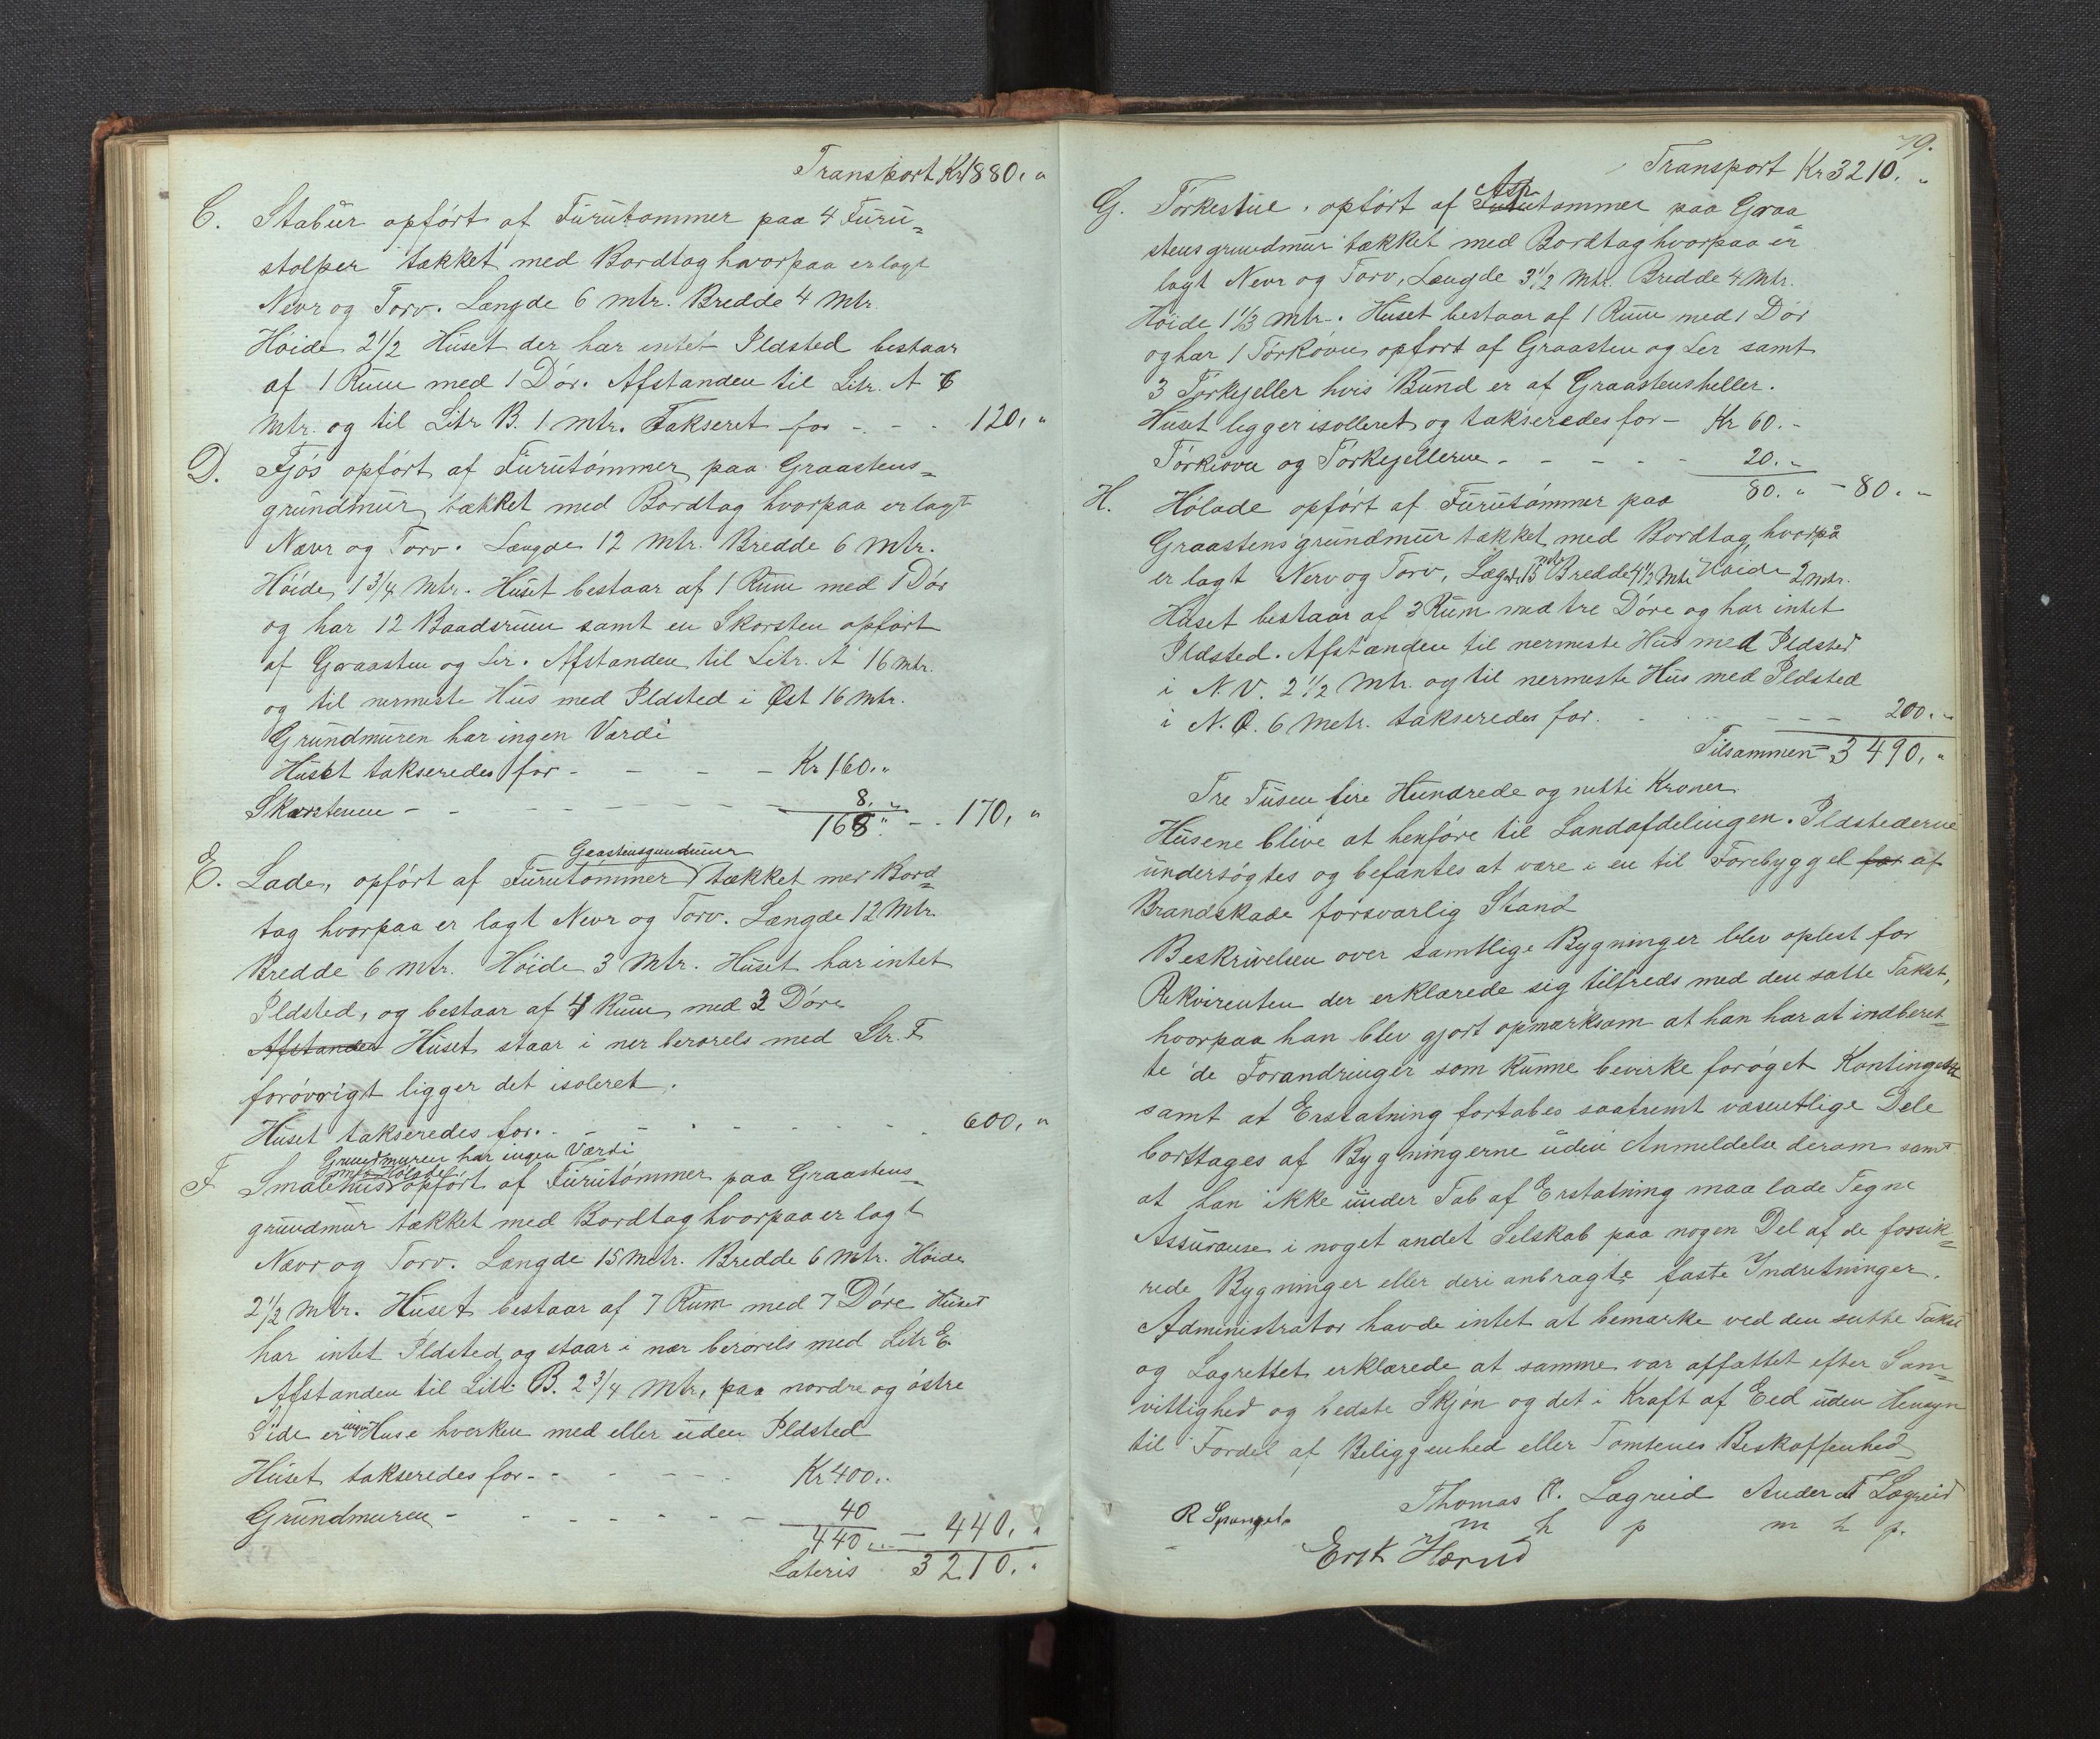 Transport Kr 1880. "
C. Stabur opført af Furutømmer paa 4 Furu-
stolper takket med Bordtag hvorpaa er lagt
Nevr og Torv. Længde 6 mtr. Bredde 4 Mtr.
Höide 2 1/2 Huset der har intet Ildsted bestaar
af 1 Rum med 1 Dør. Afstanden til Litr. A 6
Mtr. og til Litr B. 1 mtr. Takseret for - - - 120, "
D. Fjøs opført af Furutømmer paa Graastens-
grundmur, tækket med Bordtag hvorpaa er lagt
Nævr og Torv. Længde 12 Mtr. Bredde 6 Mtr.
Höide, 1 3/4 Mtr. Huset bestaar af 1 Rum med 1 Dør
og har 12 Baadsrum samt en Skorsten opført
af Graasten og Ler. Afstanden til Litr. A 16 mtr.
og til nermeste Hus med Ildsted i Øst 16 mtr.
Grundmuren har ingen Værdi
Huset takseredes for - - - - Kr 160. "
Skorstenen - - - - - - - 8. "
168 " - - 170, "
Graastensgrundmur
E. Lade, opført af Furutømmer tækket med Bord-
tag hvorpaa er lagt Nevr og Torv. Længde 12 Mtr.
Bredde 6 mtr. Höide 3 Mtr. Huset har intet
Ildsted, og bestaar af 4 Rum, med 3 Døre
Afstanden Huset staar i ner berørels med Ltr. F
forøvrigt ligger det isoleret.
Huset takseredes for. - - - - - - - 600, "
Grundmuren har ingen Værdi
med Hølade
F Smalehus opført af Furutømmer paa Graastens-
grundmur tækket med Bordtag hvorpaa er lagt
Nævr og Torv. Længde 15 Metr. Bredde 6 Mtr. Höide
2 1/2 Mtr. Huset bestaar af 7 Rum med 7 Døre Huset
har intet Ildsted og staar i nær berørels med Litr E
Afstanden til Litr B. 2 3/4 Mtr, paa nordre og østre
Side er ingen Huse hverken med eller uden Ildsted
Huset takseredes for - - - - - Kr 400. "
Grundmuren - - - - - - 40
440 " - 440. "
Lateris 3210. "
79.
Transport Kr 3210. "
Asp
G. Tørkestue, opført af Furutømmer paa Graa
stensgrundmur tækket med Bordtag hvorpaa er
lagt Nevr og Torv, Længde 3 1/2 Mtr. Bredde 4 Mtr.
Höide 1 1/3 Mtr. Huset bestaar af 1 Rum med 1 Dør
og har 1 Tørkovn opført af Graasten og Ler samt
3 Tørkejeller hvis Bund er af Graastensheller.
Huset ligger isolleret og takseredes for - Kr 60. -
Tørkovn og Tørkejellerne - - - - - 20. "
80. " - 80. "
H. Hølade opført af Furutømmer paa
Graastensgrundmur tækket med Bordtag hvorpå
er lagt Nerv og Torv, Lægde 15 mtr Bredde 4 1/2 Mtr Höide 2 mtr.
Huset bestaar af 3 Rum med tre Døre og har intet
Ildsted. Afstanden til nermeste Hus med Ildsted
i N. V. 2 1/2 Mtr. og til nermeste Hus med Ildsted
i N. Ø. 6 Metr. takseredes for. - - - - - 200. "
Tilsammen = 3490, "
Tre Tusen fire Hundrede og nitti Kroner
Husene blive at henføre til Landafdelingen. Ildstederne
undersøgtes og befantes at være i en til Forebyggel for af
Brandskade forsvarlig Stand
Beskrivelsen over samtlige Bygninger blev oplest for
Rekvirenten der erklærede sig tilfreds med den satte Takst,
hvorpaa han blev gjort opmærksom at han har at indberet-
te de Forandringer som kunne bevirke forøget Kontingent
samt at Erstatning fortabes saafremt væsentlige Dele
borttages af Bygningerne uden Anmeldelse derom samt
at han ikke under Tab af Erstatning maa lade Tegne
Assuranse i noget andet Selskab paa nogen Del af de forsik-
rede Bygninger eller deri anbragte faste Indretninger.
Administrator havde intet at bemærke ved den satte Takst
og Lagrettet erklærede at samme var affattet efter Sam-
vittighed og bedste Skjøn og det i Kraft af Eed uden Hensyn
til Fordel af Beliggenhed eller Tomtenes Beskaffenhed
Thomas O. Lægreid Anders T Lægreid
R Spangelo m h p m h p.
Erik Hærud